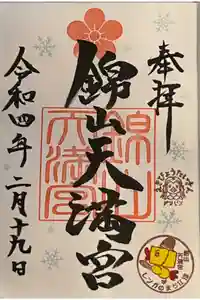 奉拝
錦山天満宮
令和四年二月十九日
錦山
天満宮